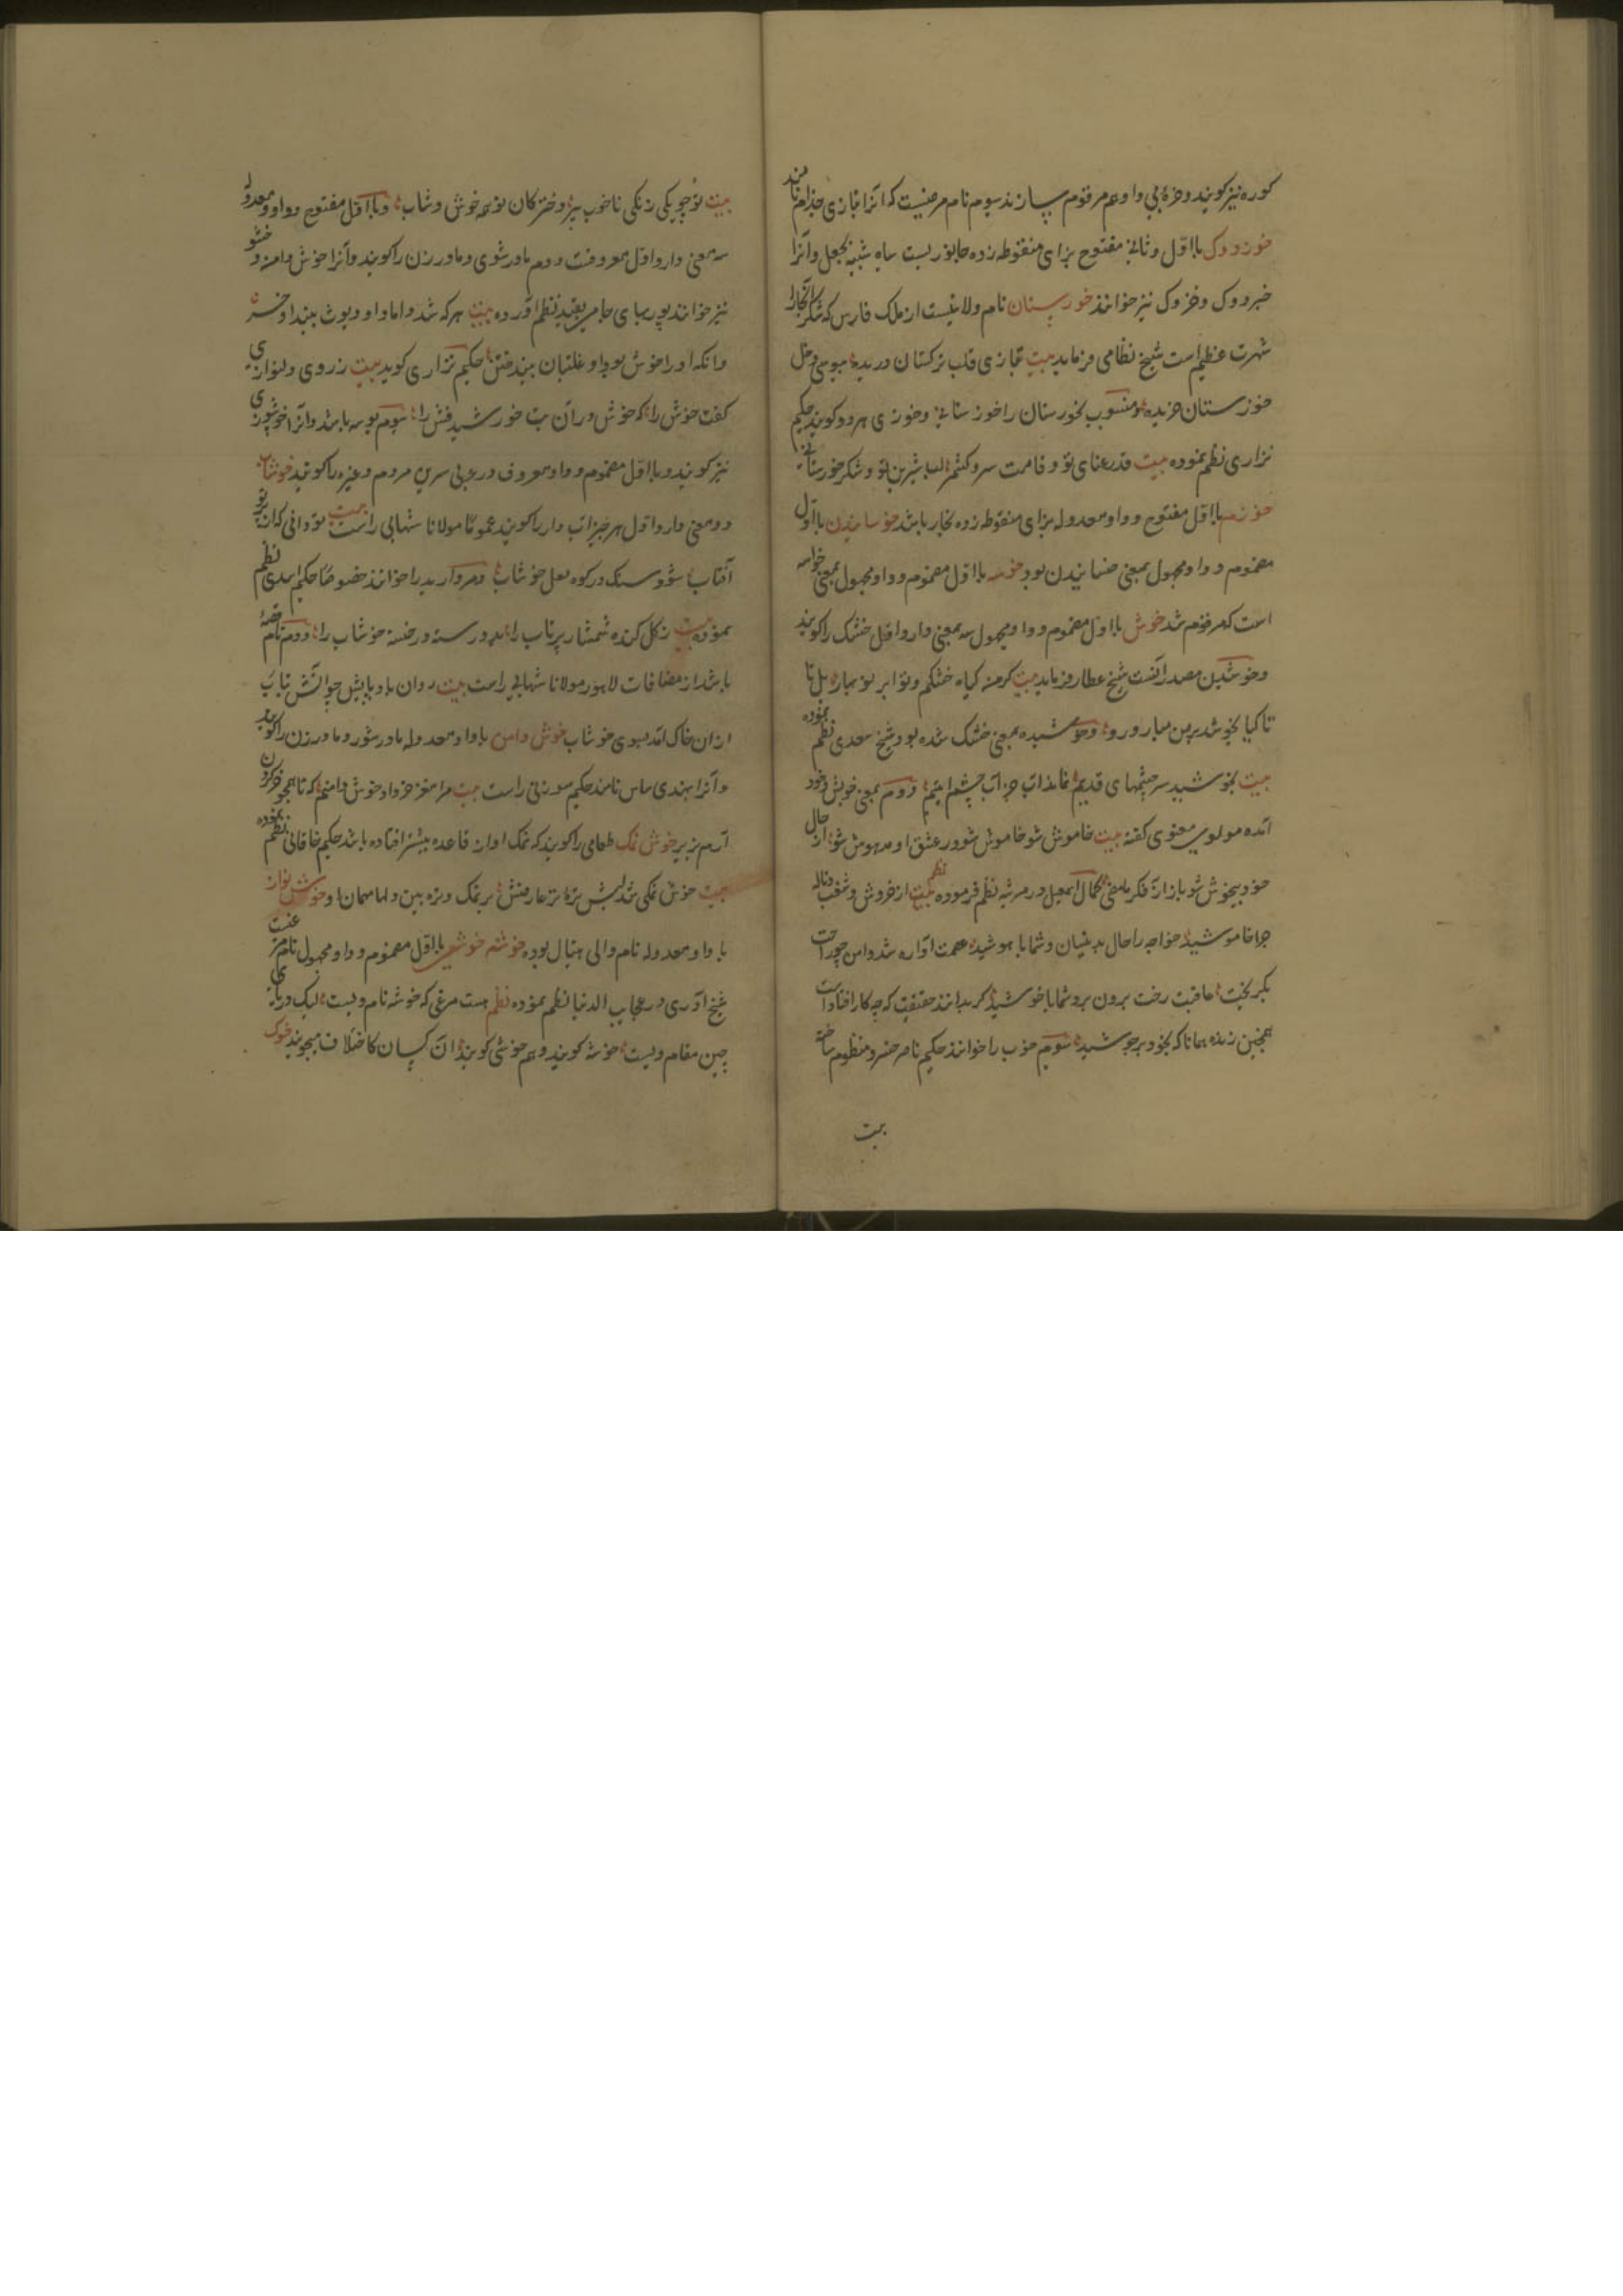 کوره نیز کویند و خره بی واو هم مرقوم سازند سیوم نام مرضیست که آنرا بتازی جذام نامند
خوزدوک با اول و ثانی مفتوح بزای منقوطه زده جانوریست سیاه شبیه بجعل و آنرا
خبزدوک و خزوک نیز خوانند خوزستان نام ولایتیست از ملک فارس که شکر آنجا را
شهرت عظیم است شیخ نظامی فرماید بیت بتازی قلب ترکستان دریده ببوسی دخل
خوزستان خریده و منسوب بخوزستان را خوزستانی و خوزی هر دو کویند حکیم
نزاری نظم نموده بیت قد رعنای تو و قامت سرو کشمر لب شیرین تو و شکر خوزستانی
خوزم با اول مفتوح و واو معدوله بزای منقوطه زده بخار باشد خوسانیدن با اول
مضموم و واو مجهول بمعنی خیسانیدن بود خوسه با اول مضموم و واو مجهول بمعنی خواسه
است که مرقوم شد خوش با اول مضموم و واو مجهول سه معنی دارد اول خشک را کویند
و خوشیدن مصدر آنست شیخ عطار فرماید بیت کرمنه کیاه خشکم و تو ابر نوبهار بل تا
تا کیا بخوشد بر من ببار و رو و خوشیده بمعنی خشک شده بود شیخ سعدی نظم نموده
بیت بخوشید سرچشمهای قدیم نماند آب جز آب چشم یتیم دوم بمعنی خویش و خود
آمده مولوی معنوی کفته بیت خاموش شو خاموش شو در عشق او مدهوش شو از حال
خود بیخوش شو باز از فکر ماضی کمال اسمعیل در مرثیه نظم فرموده نظم از خروش و شغب و ناله
چرا خاموشید خواجه را حال بدینسان و شما با هوشید عصمت آواره شد و امن چو راحت
بکریخت عاقبت رخت برون برد شما با خوشید کر بدانند حقیقت که چه کار افتادست
همچنین زنده همانا که بخود برجوشید سوم خوب را خوانند حکیم ناصر خسرو منظوم ساخته
بیت
بیت تو چو یکی زنکی ناخوب پیر دختر کان تو همه خوش و شاب و با اول مفتوح و واو معدوله
سه معنی دارد اول معروفست دوم مادر شوی و مادر زن را کویند و آنرا خوش دامن و خشو
نیز خوانند پور بهای جامی بقید نظم آورده بیت هر که شد داماد او دیوث بیند او خسر
وانکه او را خوش بود او غلتبان بیند ختن حکیم نزاری کوید بیت ز روی دلنوازی
کفت خوش را که خوش در آن بت خورشیدفش را سوم بوسه باشد و آنرا خوش پوزی
نیز کویند و با اول مضموم و واو معروف در عربی سرین مردم و غیره را کویند خوشاب
دو معنی دارد اول هر چیز آب دار را کویند عموما مولانا شهابی راست بیت تو دانی که از پرتو
آفتاب شود سنک در کوه لعل خوشاب و مروارید را خوانند خصوصا حکیم اسدی نظم
نموده بیت ز کل کنده شمشاد پرتاب را بدو رسته در خسته خوشاب را دوم نام قصبهٔ
باشد از مضافات لاهور مولانا شهابی راست بیت روان باد پایش چو آتش بتاب
از آن خاک آمد بسوی خوشاب خوش دامن با واو معدوله مادر شوهر و مادر زن را کویند
و آنرا بهندی ساس نامند حکیم سوزنی راست بیت مرا مغز خر داد خوش دامنم که تا همچو خر کردن
آرم بزیر خوش نمک طعامی را کویند که نمک او از قاعده بیشتر افتاده باشد حکیم خاقانی نظم نموده
بیت خوش نمکی شد لبش تره تر عارضش بر نمک و تره بین دلها مهمان او خوش نواز
با واو معدوله نام والی هیتال بوده خوشه خوشی با اول مضموم و واو مجهول نام مرغیست
شیخ آذری در عجایب الدنیا نظم نموده نظم هست مرغی که خوشه نام ویست لیک دریای
چین مقام ویست خوشه کویند و هم خوشی کویند آن کسان کاختلاف میجویند خوک